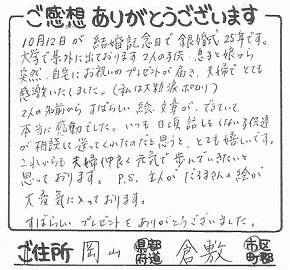 ご感想 ありがとうございます
10月12日が 結婚記念日で 銀婚式 25年です。
大学で県外に出ております 2人の子供、息子と娘から
突然、自宅にお祝いのプレゼントが届き、夫婦でとても
感激いたしました。(私は大粒涙ポロリ)
2人の名前から すばらしい 絵、文章が、できていて
本当に感動でした。いつも 日頃 話しもしない子供達
が相談して送ってくれたのだと思うと、とても嬉しいです。
これからも 夫婦仲良く 元気で 歩んでいきたいと
思っております。 P.S. 主人が だるまさんの絵が
大変気に入っております。
すばらしい プレゼントを ありがとうございました。
ご住所 岡山 県都府道 倉敷 市区町郡